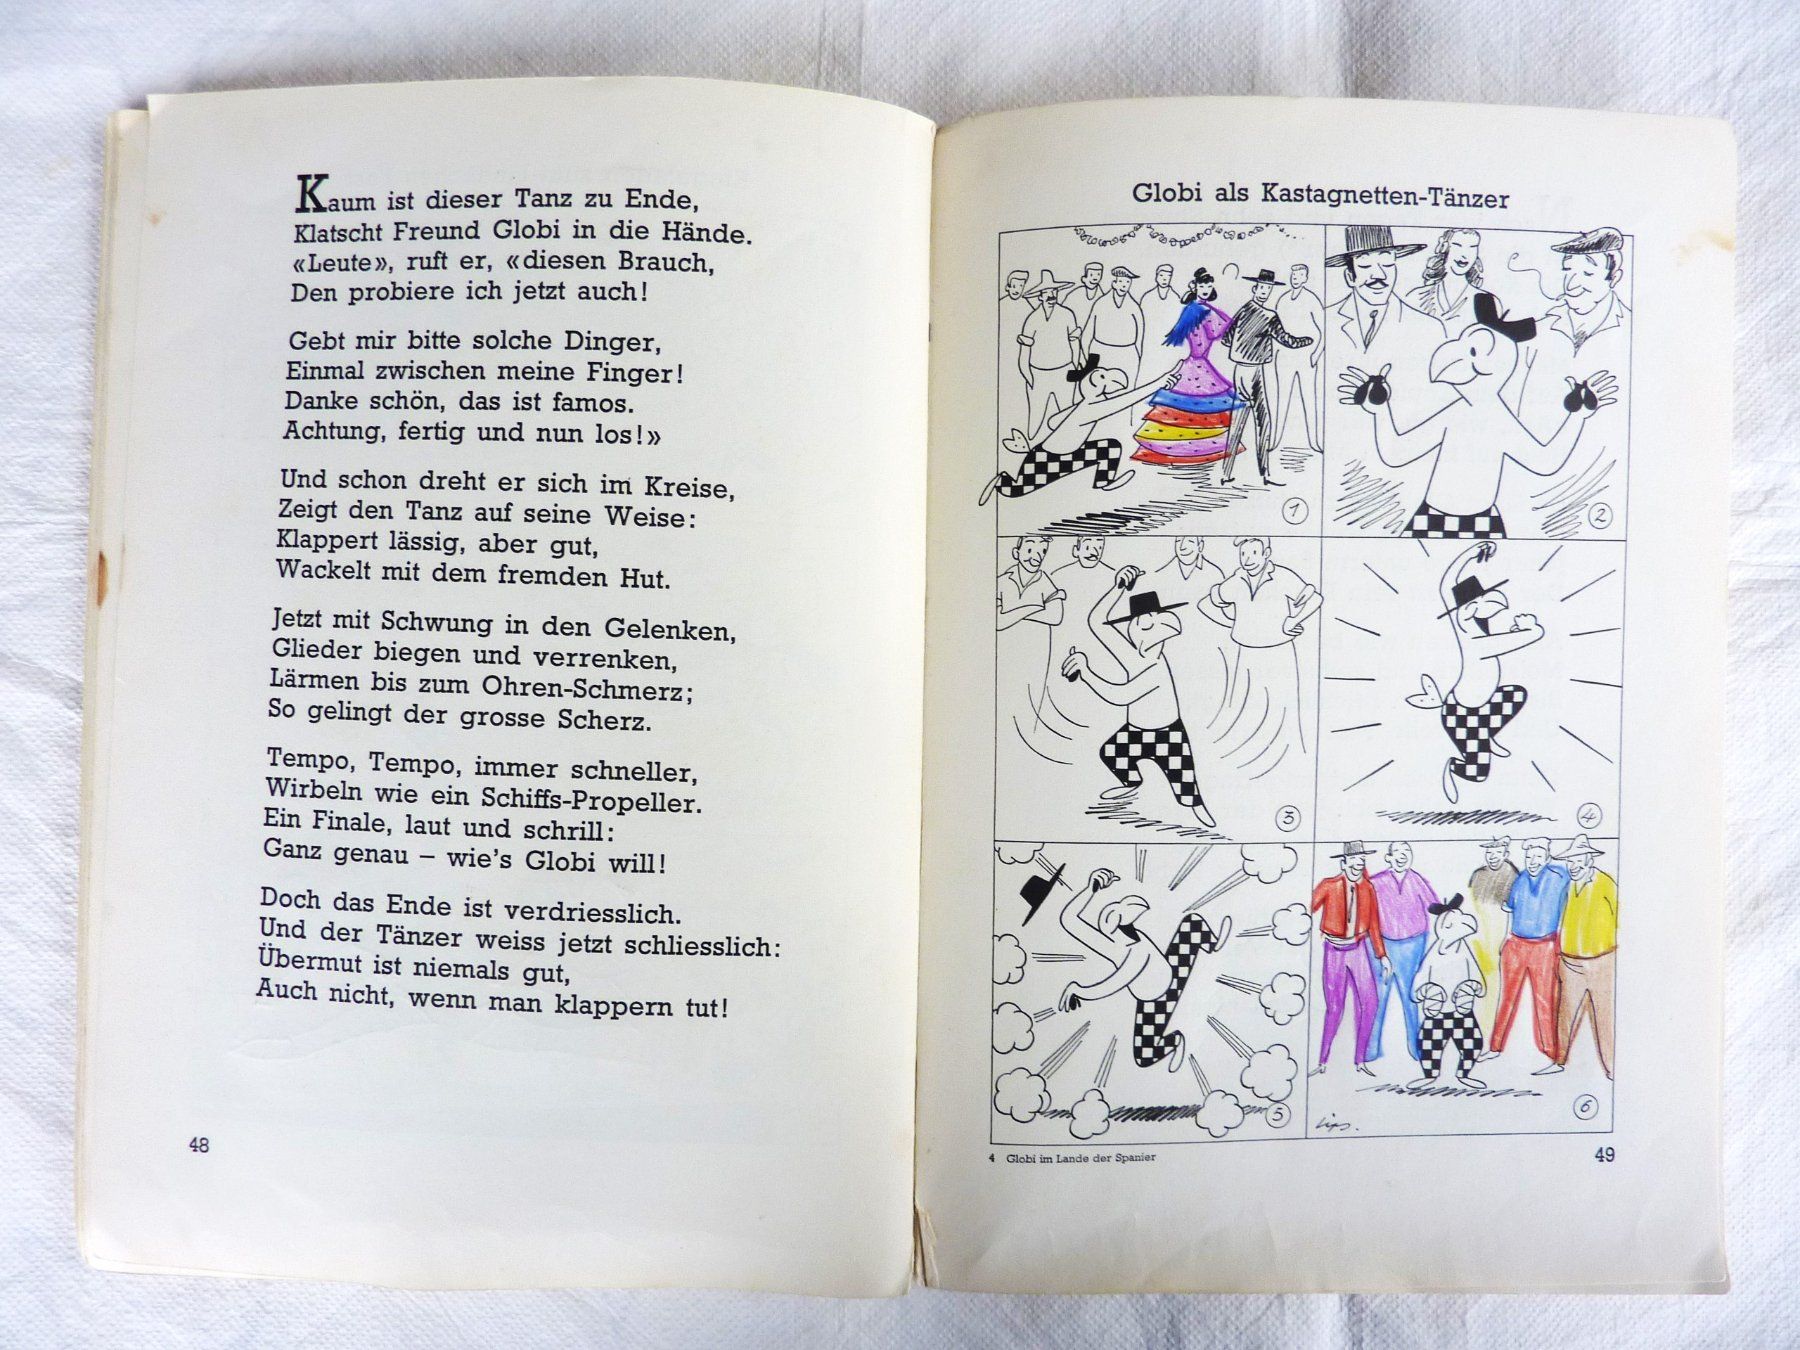 Kaum ist dieser Tanz zu Ende,
Klatscht Freund Globi in die Hände.
«Leute», ruft er, «diesen Brauch,
Den probiere ich jetzt auch!
Gebt mir bitte solche Dinger,
Einmal zwischen meine Finger!
Danke schön, das ist famos.
Achtung, fertig und nun los!»
Und schon dreht er sich im Kreise,
Zeigt den Tanz auf seine Weise:
Klappert lässig, aber gut,
Wackelt mit dem fremden Hut.
Jetzt mit Schwung in den Gelenken,
Glieder biegen und verrenken,
Lärmen bis zum Ohren-Schmerz;
So gelingt der grosse Scherz.
Tempo, Tempo, immer schneller,
Wirbeln wie ein Schiffs-Propeller.
Ein Finale, laut und schrill:
Ganz genau – wie's Globi will!
Doch das Ende ist verdriesslich.
Und der Tänzer weiss jetzt schliesslich:
Übermut ist niemals gut,
Auch nicht, wenn man klappern tut!
48
Globi als Kastagnetten-Tänzer
1
2
3
4
5
6
Lips.
4 Globi im Lande der Spanier
49